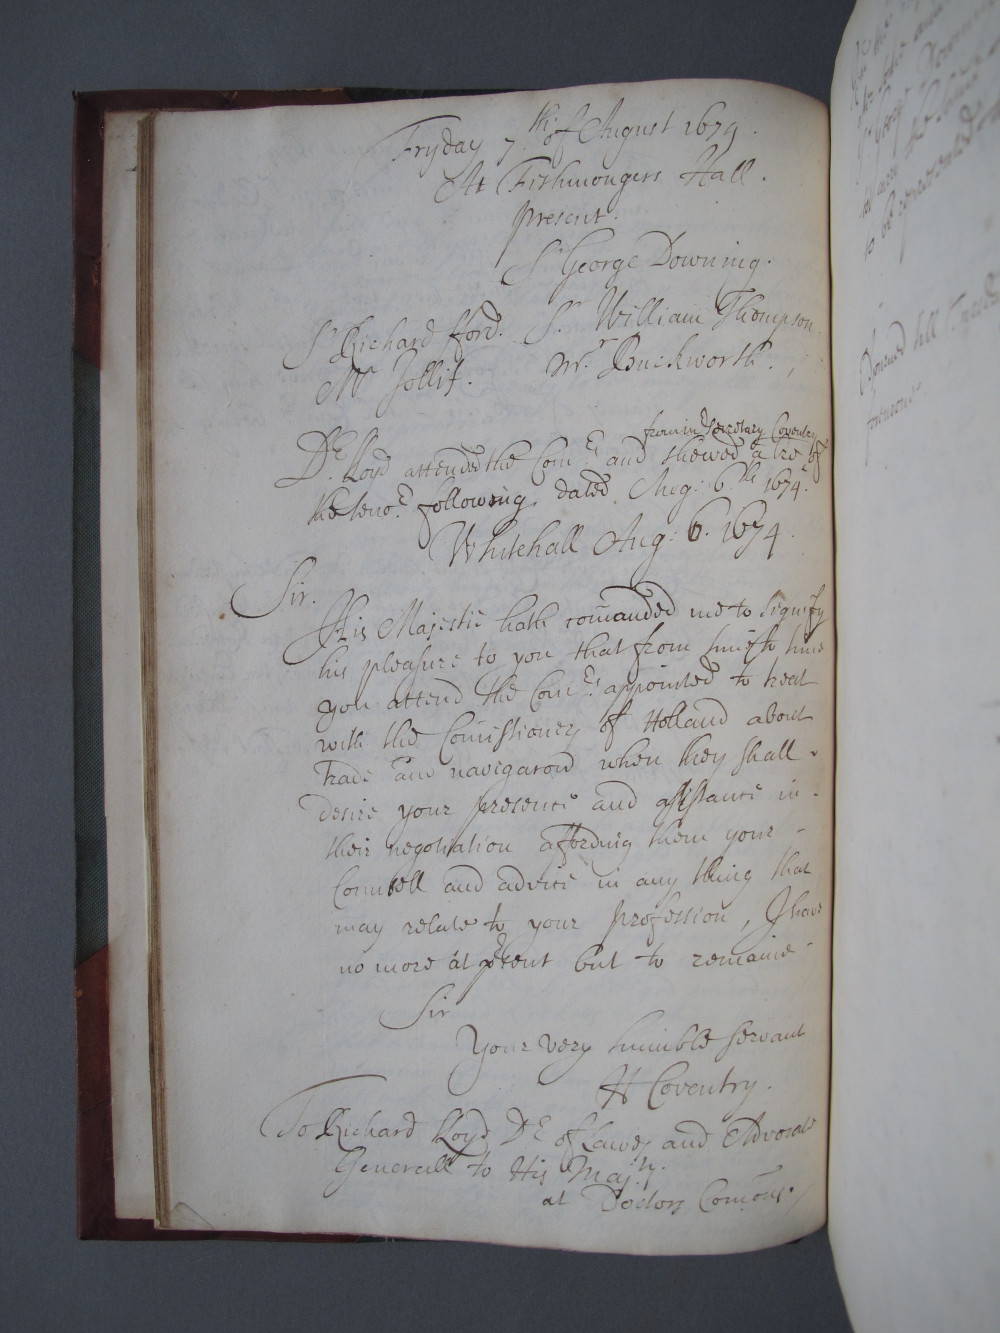 Fryday 7th. of August 1674.
At Fishmongers Hall.
present.
Sr George Downing.
Sr Richard fford. Sr. William Thompson.
Mr Jollif. Mr. Buckworth.
from mr Secretary Coventry
Dr. Lloyd attended the Comrs. and shewed a lre of
the tenor. following, dated Aug: 6.th 1674.
Whitehall Aug: 6. 1674.
Sir.
His Majestie hath comanded me to signify
his pleasure to you that from time to time
you attend the Comrs. appointed to treat
with the Comissioners of Holland about
Trade and navigation when they shall
desire your presence and assistance in
their negotiation affording them your
Counsell and advice in any thing that
may relate to your profession, I have
no more at prsent but to remaine
Sir
Your very humble servant
H Coventry.
To Richard Lloyd Dr. of Lawes and Advocate
Generall to His Maj.ty.
at Doctors Comons.